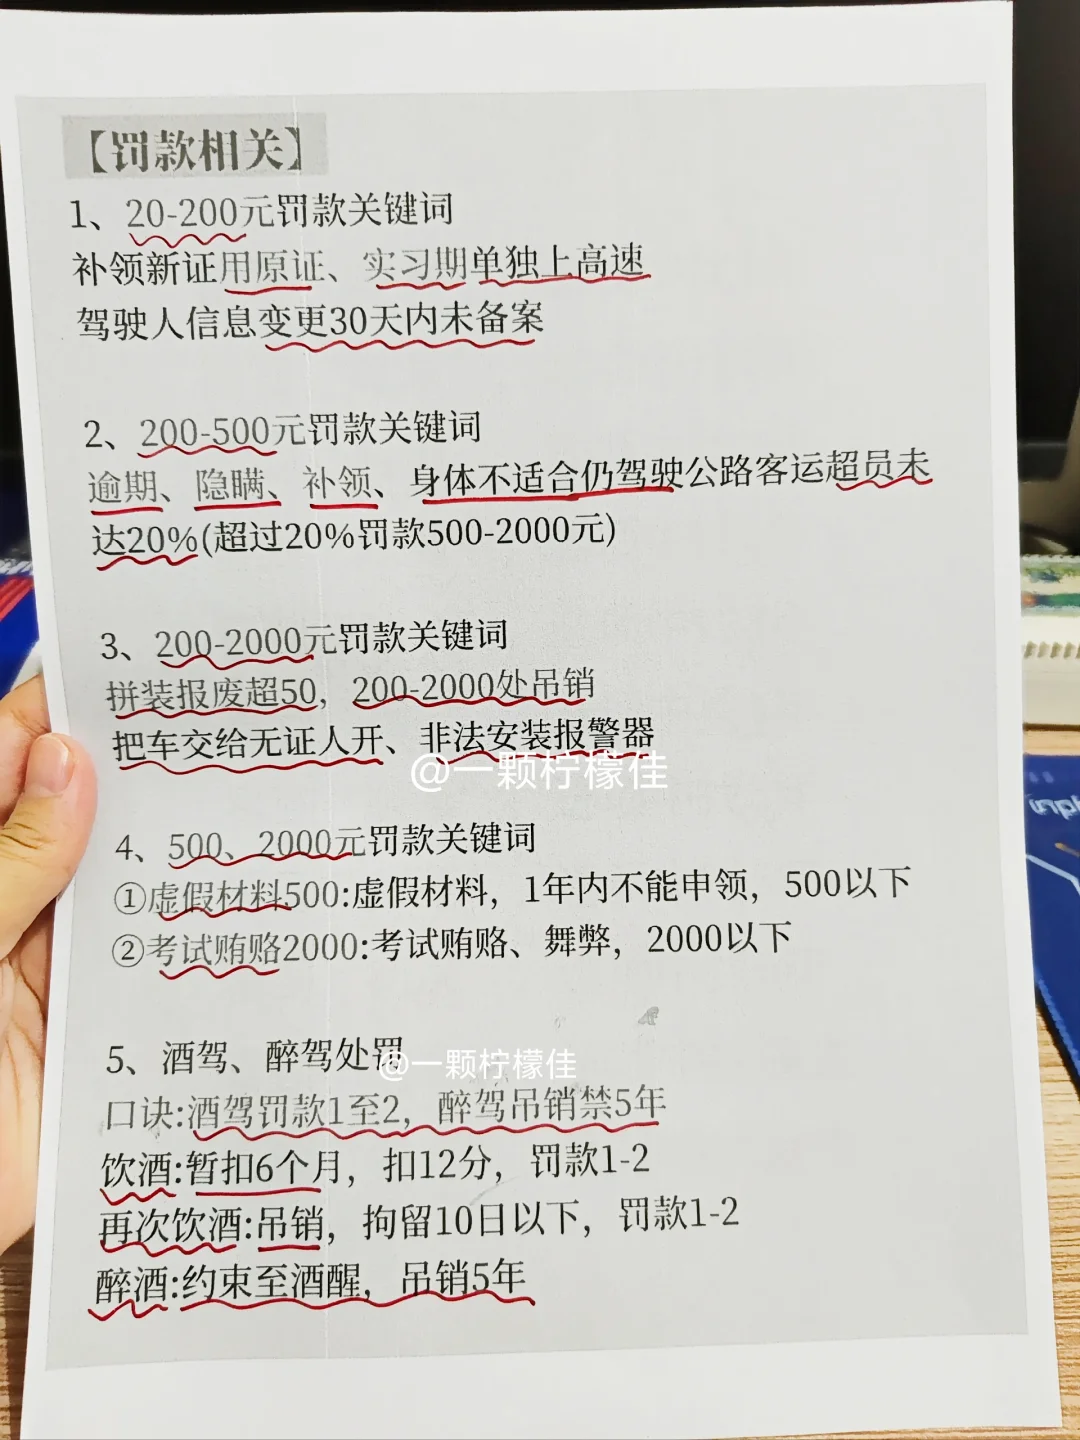 【罚款相关】
1、20-200元罚款关键词
补领新证用原证、实习期单独上高速
驾驶人信息变更30天内未备案
2、200-500元罚款关键词
逾期、隐瞒、补领、身体不适合仍驾驶公路客运超员未
达20%(超过20%罚款500-2000元)
3、200-2000元罚款关键词
拼装报废超50，200-2000处吊销
把车交给无证人开、非法安装报警器
@一颗柠檬佳
4、500、2000元罚款关键词
①虚假材料500:虚假材料，1年内不能申领，500以下
②考试贿赂2000:考试贿赂、舞弊，2000以下
5、酒驾、醉驾处罚
@一颗柠檬佳
口诀:酒驾罚款1至2，醉驾吊销禁5年
饮酒:暂扣6个月，扣12分，罚款1-2
再次饮酒:吊销，拘留10日以下，罚款1-2
醉酒:约束至酒醒，吊销5年